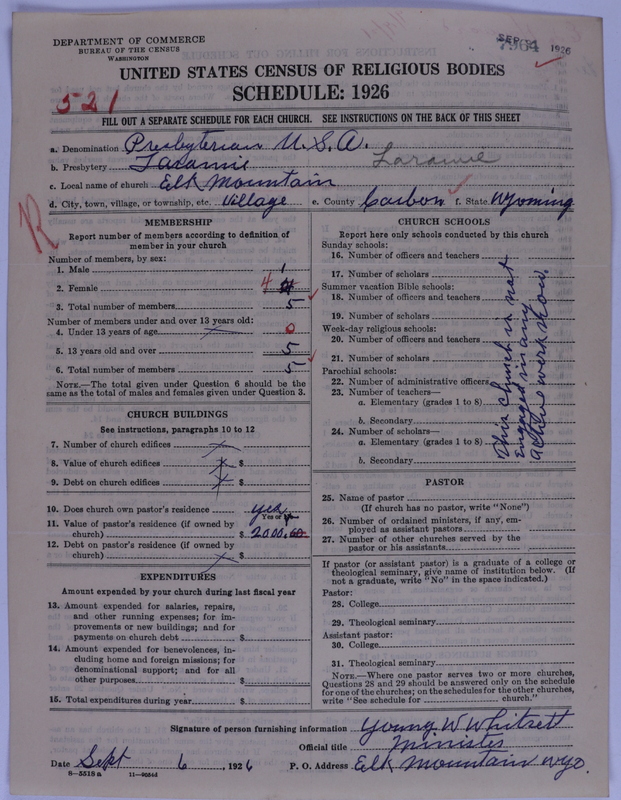 DEPARTMENT OF COMMERCE
BUREAU OF THE CENSUS
WASHINGTON
SEP 1926
7964
UNITED STATES CENSUS OF RELIGIOUS BODIES
SCHEDULE: 1926
521
FILL OUT A SEPARATE SCHEDULE FOR EACH CHURCH. SEE INSTRUCTIONS ON THE BACK OF THIS SHEET
a. Denomination Presbyterian U.S.A.
b. Presbytery Laramie Laramie
c. Local name of church Elk Mountain
d. City, town, village, or township, etc. Village e. County Carbon f. State Wyoming
R
MEMBERSHIP
Report number of members according to definition of
member in your church
Number of members, by sex:
1. Male 1
2. Female 4 4
3. Total number of members 5
Number of members under and over 13 years old:
4. Under 13 years of age 0
5. 13 years old and over 5
6. Total number of members 5
NOTE.—The total given under Question 6 should be the
same as the total of males and females given under Question 3.
CHURCH BUILDINGS
See instructions, paragraphs 10 to 12
7. Number of church edifices
8. Value of church edifices $
9. Debt on church edifices $
10. Does church own pastor's residence yes
Yes or No
11. Value of pastor's residence (if owned by
church) $ 2000.00
12. Debt on pastor's residence (if owned by
church) $
EXPENDITURES
Amount expended by your church during last fiscal year
13. Amount expended for salaries, repairs,
and other running expenses; for im-
provements or new buildings; and for
payments on church debt $
14. Amount expended for benevolences, in-
cluding home and foreign missions; for
denominational support; and for all
other purposes $
15. Total expenditures during year $
CHURCH SCHOOLS
Report here only schools conducted by this church
Sunday schools:
16. Number of officers and teachers
17. Number of scholars
Summer vacation Bible schools:
18. Number of officers and teachers
19. Number of scholars
Week-day religious schools:
20. Number of officers and teachers
21. Number of scholars
Parochial schools:
22. Number of administrative officers
23. Number of teachers—
a. Elementary (grades 1 to 8)
b. Secondary
24. Number of scholars—
a. Elementary (grades 1 to 8)
b. Secondary
This church is not
engaged in any
active work now.
PASTOR
25. Name of pastor
(If church has no pastor, write "None")
26. Number of ordained ministers, if any, em-
ployed as assistant pastors
27. Number of other churches served by the
pastor or his assistants
If pastor (or assistant pastor) is a graduate of a college or
theological seminary, give name of institution below. (If
not a graduate, write "No" in the space indicated.)
Pastor:
28. College
29. Theological seminary
Assistant pastor:
30. College
31. Theological seminary
NOTE.—Where one pastor serves two or more churches,
Questions 28 and 29 should be answered only on the schedule
for one of the churches; on the schedules for the other churches,
write "See schedule for church."
Signature of person furnishing information Young W Whitsett
Official title Minister
Date Sept 6, 1926 P. O. Address Elk Mountain Wyo.
8—5518 a